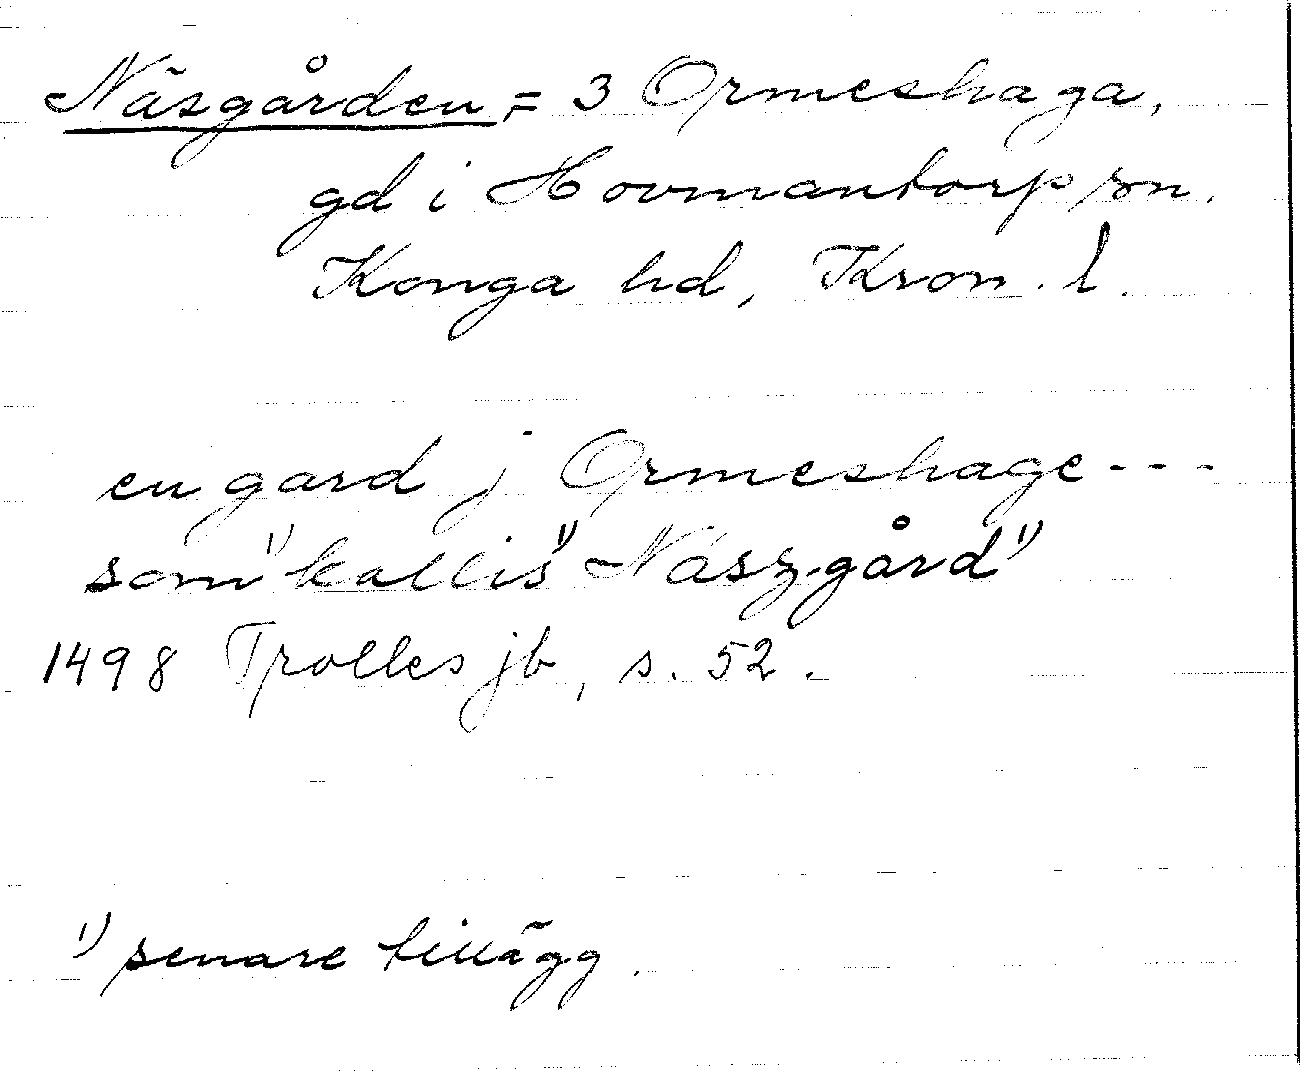 Näsgården, = 3 Ormeshaga,
gd i Hovmantorp sn.
Konga hd, Kron. l.
en gard j Ormeshage ---
som¹⁾ kallis¹⁾ Näszgård¹⁾
1498 Trolles jb, s. 52.
¹⁾ senare tillägg.